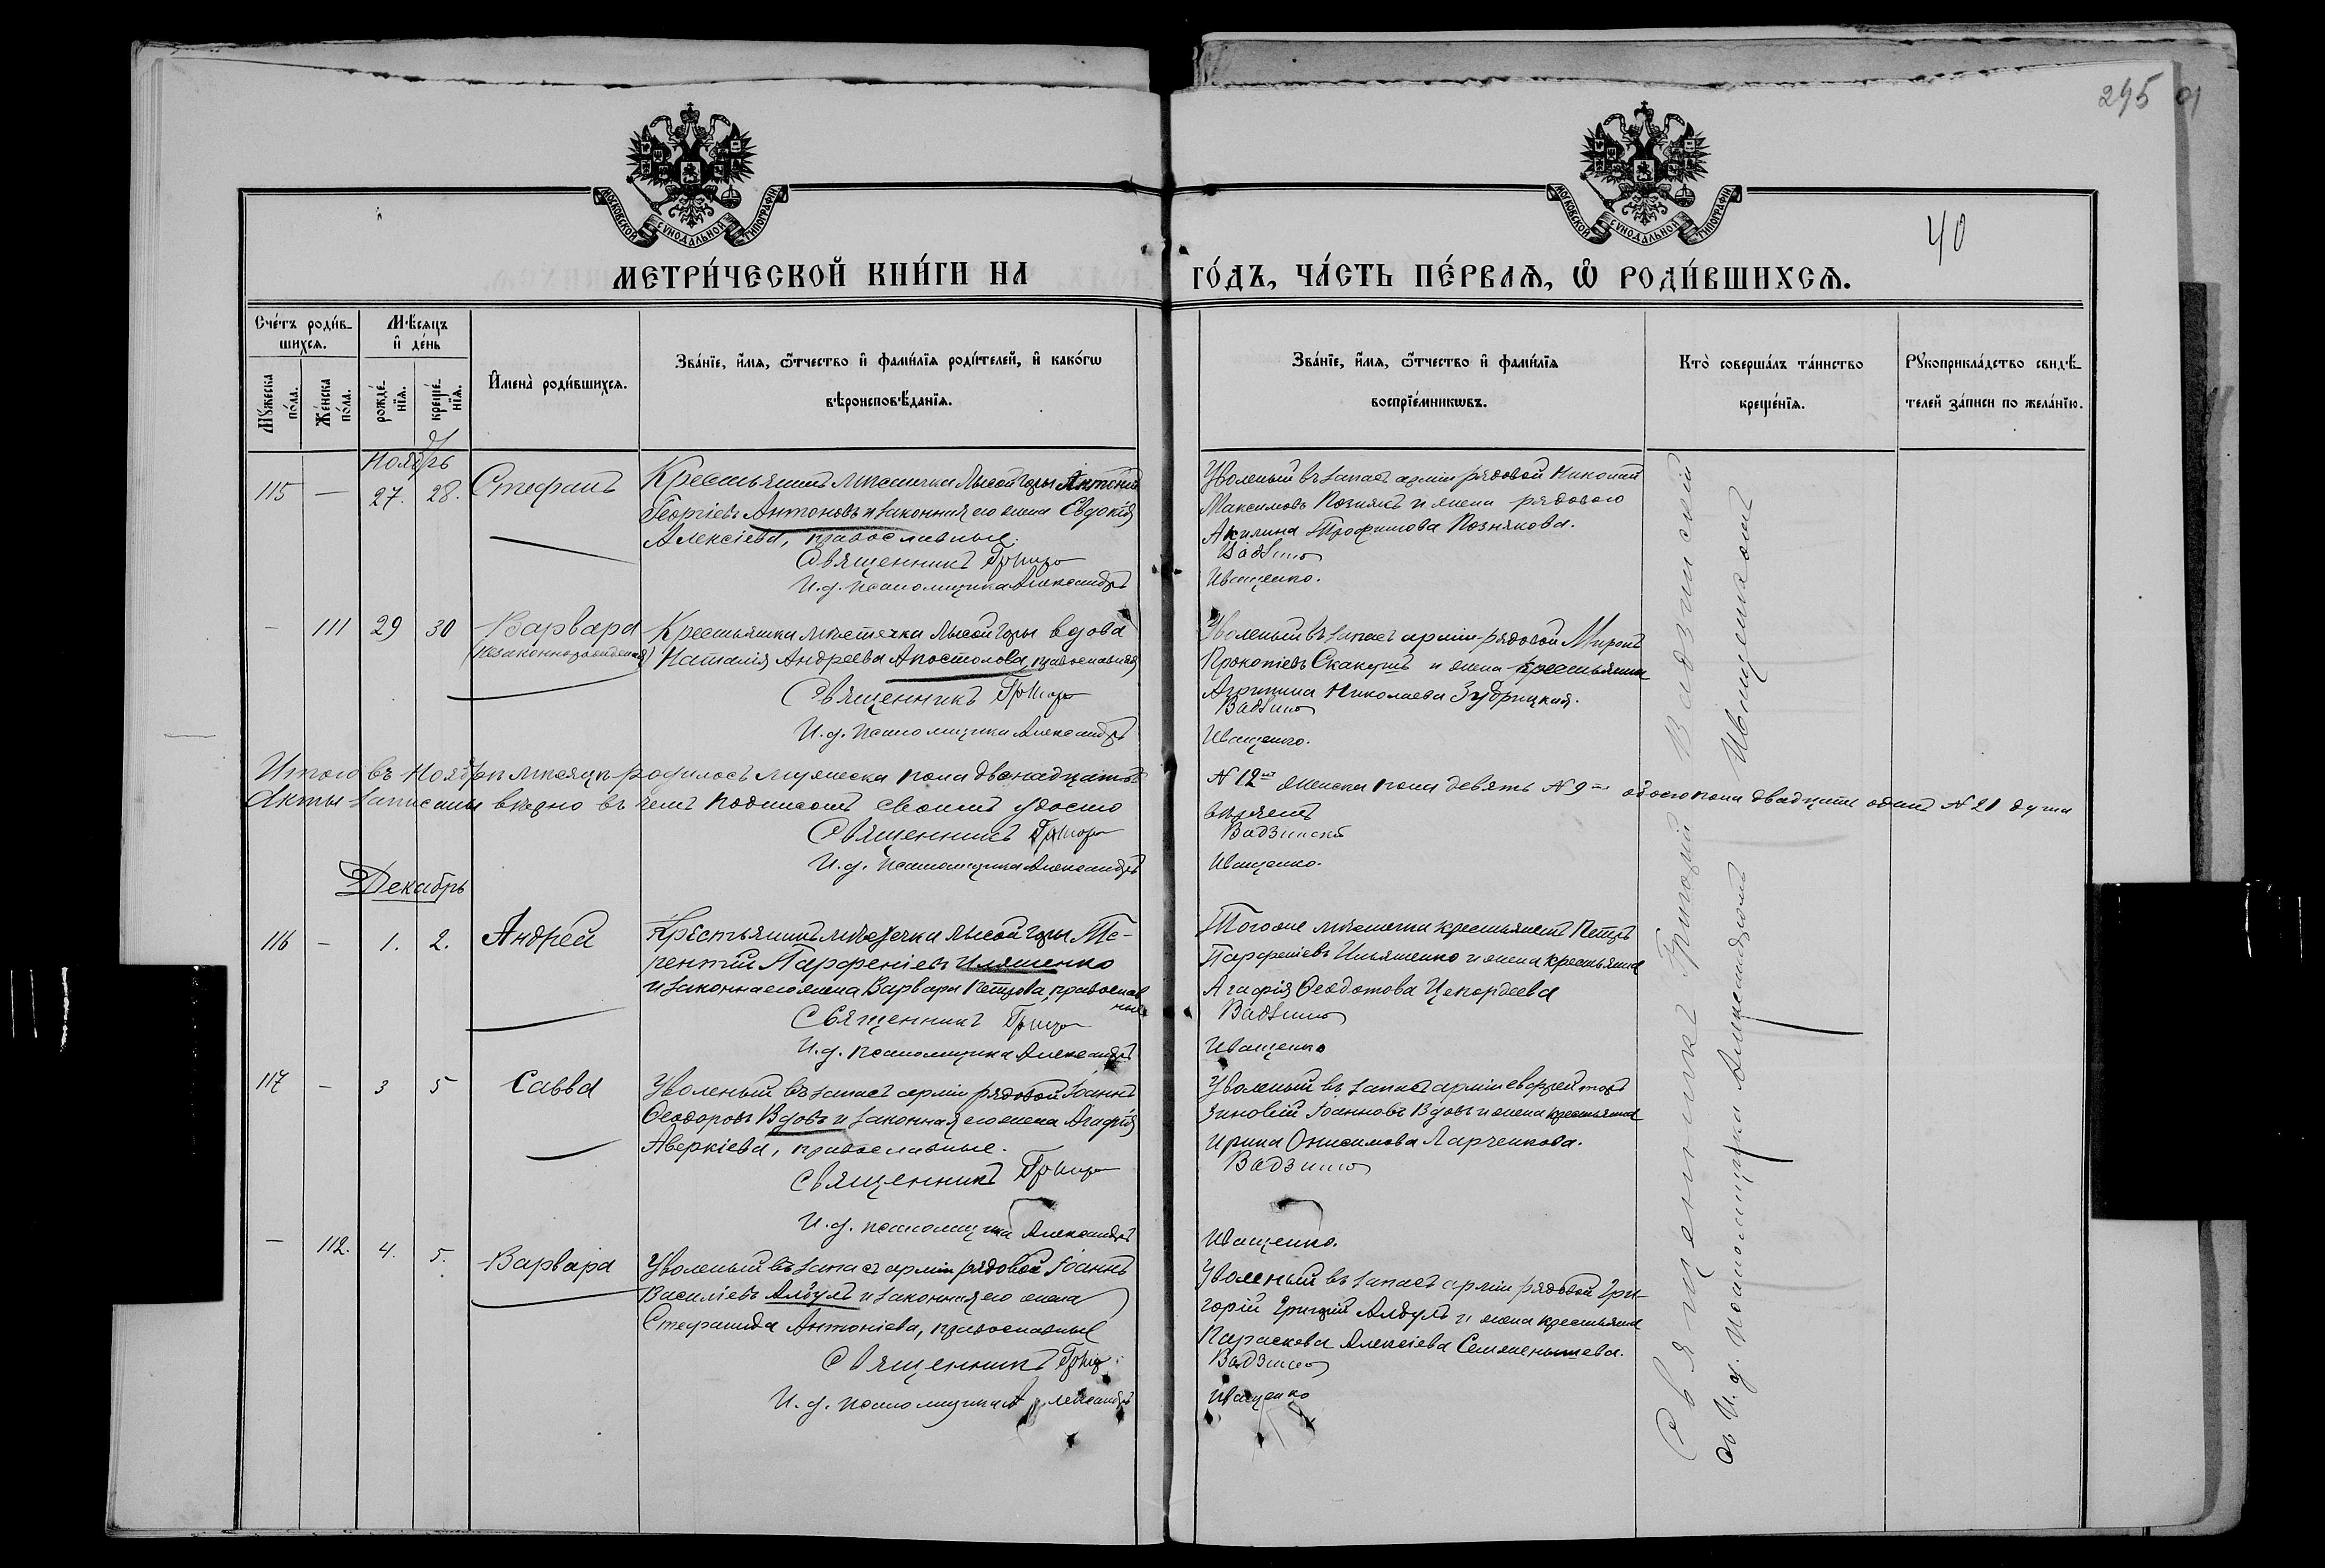 295
40
МОСКОВСКОЙ СѴНОДАЛЬНОЙ ТИПОГРАФІИ
МОСКОВСКОЙ СѴНОДАЛЬНОЙ ТИПОГРАФІИ
МЕТРИ́ЧЕСКОЙ КНИ́ГИ НА
ГО́ДЪ, ЧА́СТЬ ПЕ́РВАѦ, Ѡ РОДИ́ВШИХСѦ.
Сче́тъ роди́в-
шихсѧ.
Мѣ́сѧцъ
и҆ де́нь
Мꙋжеска
по́ла.
Же́нска
по́ла.
рожде́-
нїѧ.
креще́-
нїѧ.
И҆мена̀ роди́вшихсѧ.
Зва́нїе, и҆́мѧ, ѻ҆́тчество и҆ фами́лїѧ роди́телей, и҆ како́гѡ
вѣроисповѣ́данїѧ.
Зва́нїе, и҆́мѧ, ѻ҆́тчество и҆ фами́лїѧ
воспрїе́мникѡвъ.
Кто̀ соверша́лъ та́инство
креще́нїѧ.
Рꙋкоприкла́дство свидѣ́-
телей за́писи по жела́нїю.
Ноябрь
115 — 27. 28. Стефанъ
Крестьянинъ мѣстечка Лысой Горы Антоній
Георгіевъ Антоновъ и законная его жена Евдокія
Алексіева, православные.
Священникъ Григор
И. д. псаломщика Александръ
Уволеный въ запасъ арміи рядовой Николай
Максимовъ Познякъ и жена рядового
Акилина Трофимова Познякова.
Вадзинс
Иващенко.
— 111 29 30 Варвара
(незаконнорожденная)
Крестьянка мѣстечка Лысой Горы вдова
Наталія Андреева Апостолова, православная
Священникъ Григор
И. д. псаломщика Александръ
Уволеный въ запасъ арміи рядовой Миронъ
Прокопіевъ Скакунъ и жена крестьянина
Агрипина Николаева Зубрицкая.
Вадзинс
Иващенко.
Итого въ Ноябрѣ мѣсяцѣ родилось мужеска пола двѣнадцать
№ 12 женска пола девять № 9 обоего пола двадцать одинъ № 21 душа
Акты записаны вѣрно въ чемъ подписомъ своимъ удосто
вѣряемъ
Священникъ Григор
Вадзинскій
И. д. псаломщика Александръ
Иващенко.
Декабрь
116 — 1. 2. Андрей
Крестьянинъ мѣстечка Лысой Горы Те-
рентій Парфеніевъ Иляшенко
и законна его жена Варвара Петрова, православ
ные.
Священникъ Григор
И. д. псаломщика Александръ
Того же мѣстечка крестьянинъ Петръ
Парфеніевъ Ильяшенко и жена крестьянина
Агафія Ѳеодотова Цекордеева
Вадзинс
Иващенко
117 — 3 5 Савва
Уволеный въ запасъ арміи рядовой Іоаннъ
Ѳеодоровъ Вдовъ и законная его жена Агафія
Аверкіева, православные.
Священникъ Григор
И. д. псаломщика Александръ
Уволеный въ запасъ арміи ефрейторъ
Зиновій Іоанновъ Вдовъ и жена крестьянина
Ирина Онисимова Ларченкова.
Вадзинс
Иващенко.
— 112. 4. 5. Варвара
Уволеный въ запасъ арміи рядовой Іоаннъ
Василіевъ Албулъ и законная его жена
Стефанида Антоніева, православные
Священникъ Григор
И. д. псаломщика Александръ
Уволеный въ запасъ арміи рядовой Гри-
горій Григорій Албулъ и жена крестьянина
Параскева Алексіева
Вадзинс
Иващенко
Священникъ Григорій Вадзинскій
съ И. д. Псаломщика Александромъ Иващенкомъ